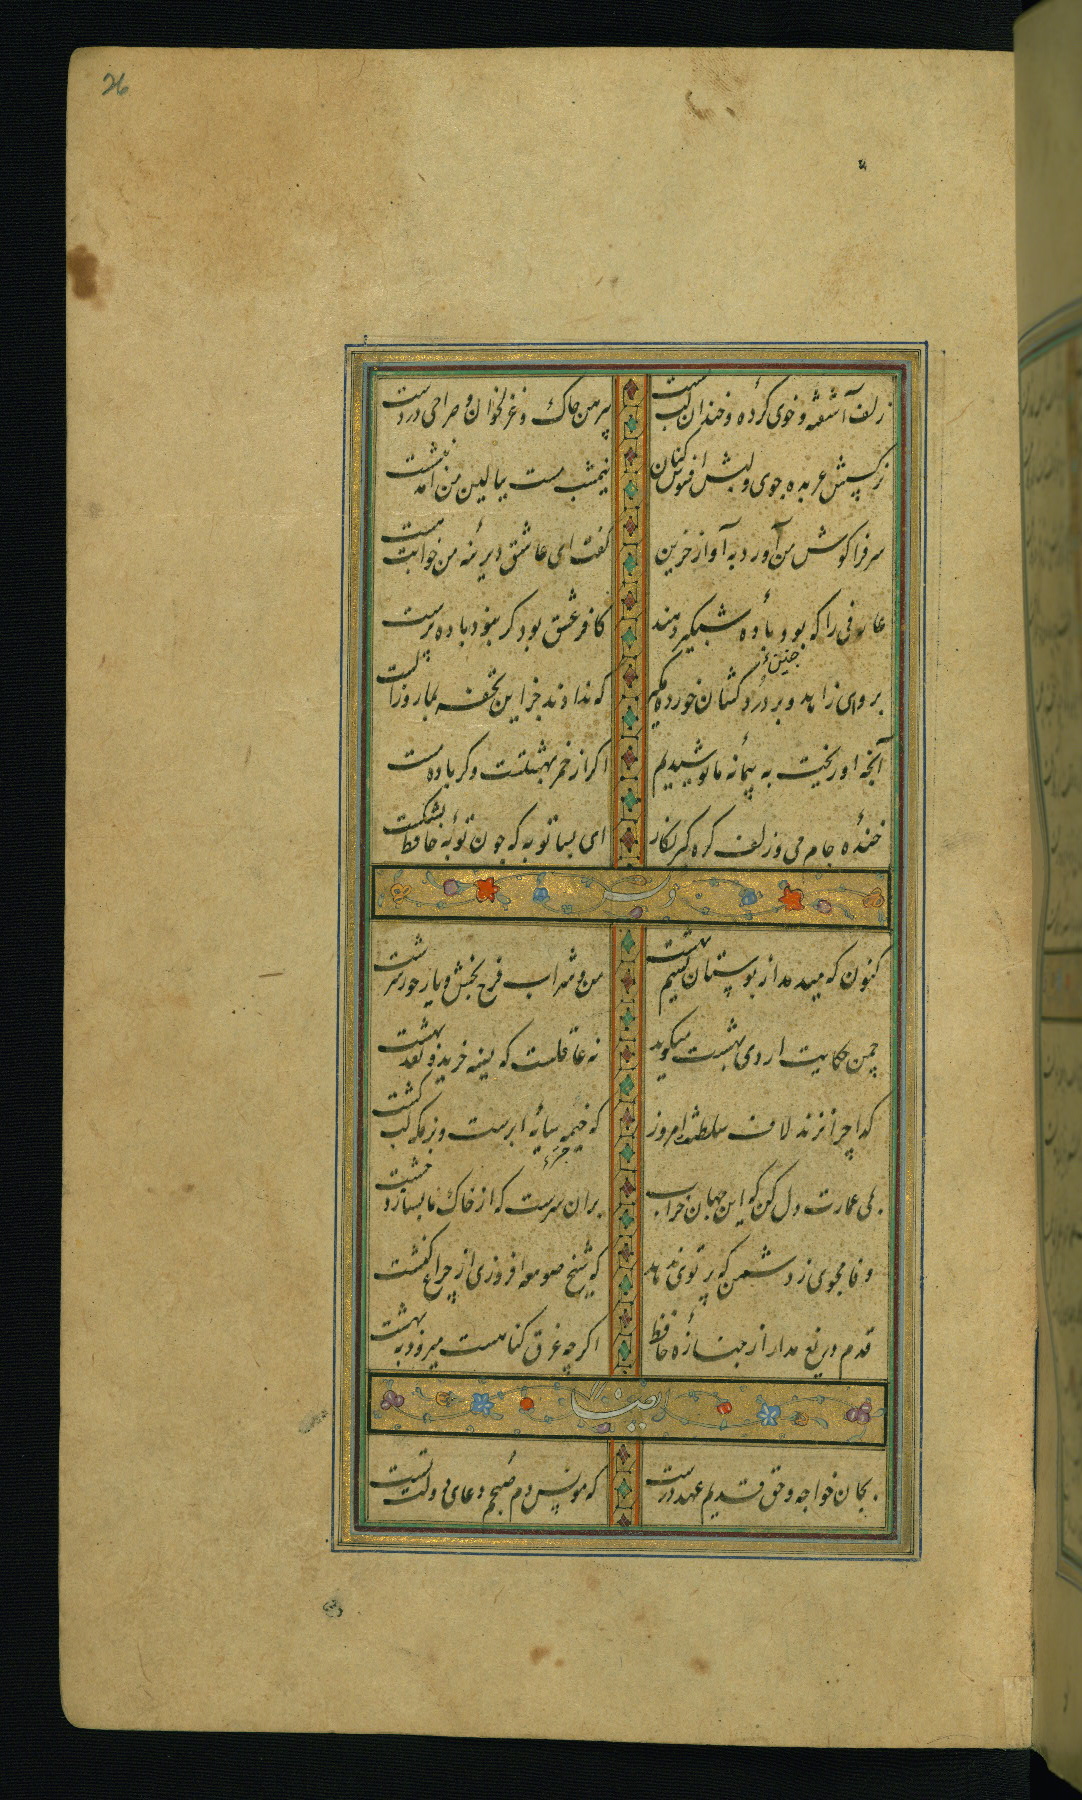 26
زلف آشفته و خوی کرده و خندان لب مست
پیرهن چاک و غزلخوان و صراحی در دست
نرکسش عربده جوی و لبش افسوس کنان
نیمشب مست ببالین من آمد بنشست
سر فرا کوش من آورد به آواز حزین
کفت ای عاشق دیرینه من خوابت هست
عارفی را که بود باده شبکیر دهند
کافر عشق بود کر نبود باده پرست
برو ای زاهد و بر درد کشان خورده مکیر
که ندادند جز این تحفه بما روز الست
آنچه او ریخت به پیمانه ما نوشیدیم
اکر از خمر بهشتست و کر باده مست
خنده جام می و زلف کره کیر نکار
ای بسا توبه که چون توبه حافظ بشکست
کنون که میدمد از بوستان نسیم بهشت
من و شراب فرح بخش و یار حور سرشت
چمن حکایت اردی بهشت میکوید
نه عاقلست که نسیه خرید و نقد بهشت
کدا چرا نزند لاف سلطنت امروز
که خیمه سایه ابرست و بزمکه لب کشت
بمی عمارت دل کن که این جهان خراب
بران سرست که از خاک ما بسازد خشت
وفا مجوی ز دشمن که پرتوی ندهد
که شمع صومعه افروزی از چراغ کنشت
قدم دریغ مدار از جنازه حافظ
اکرچه غرق کناهست میرود به بهشت
ایضا
بجان خواجه و حق قدیم و عهد درست
که مونس دم صبحم دعای دولت تست